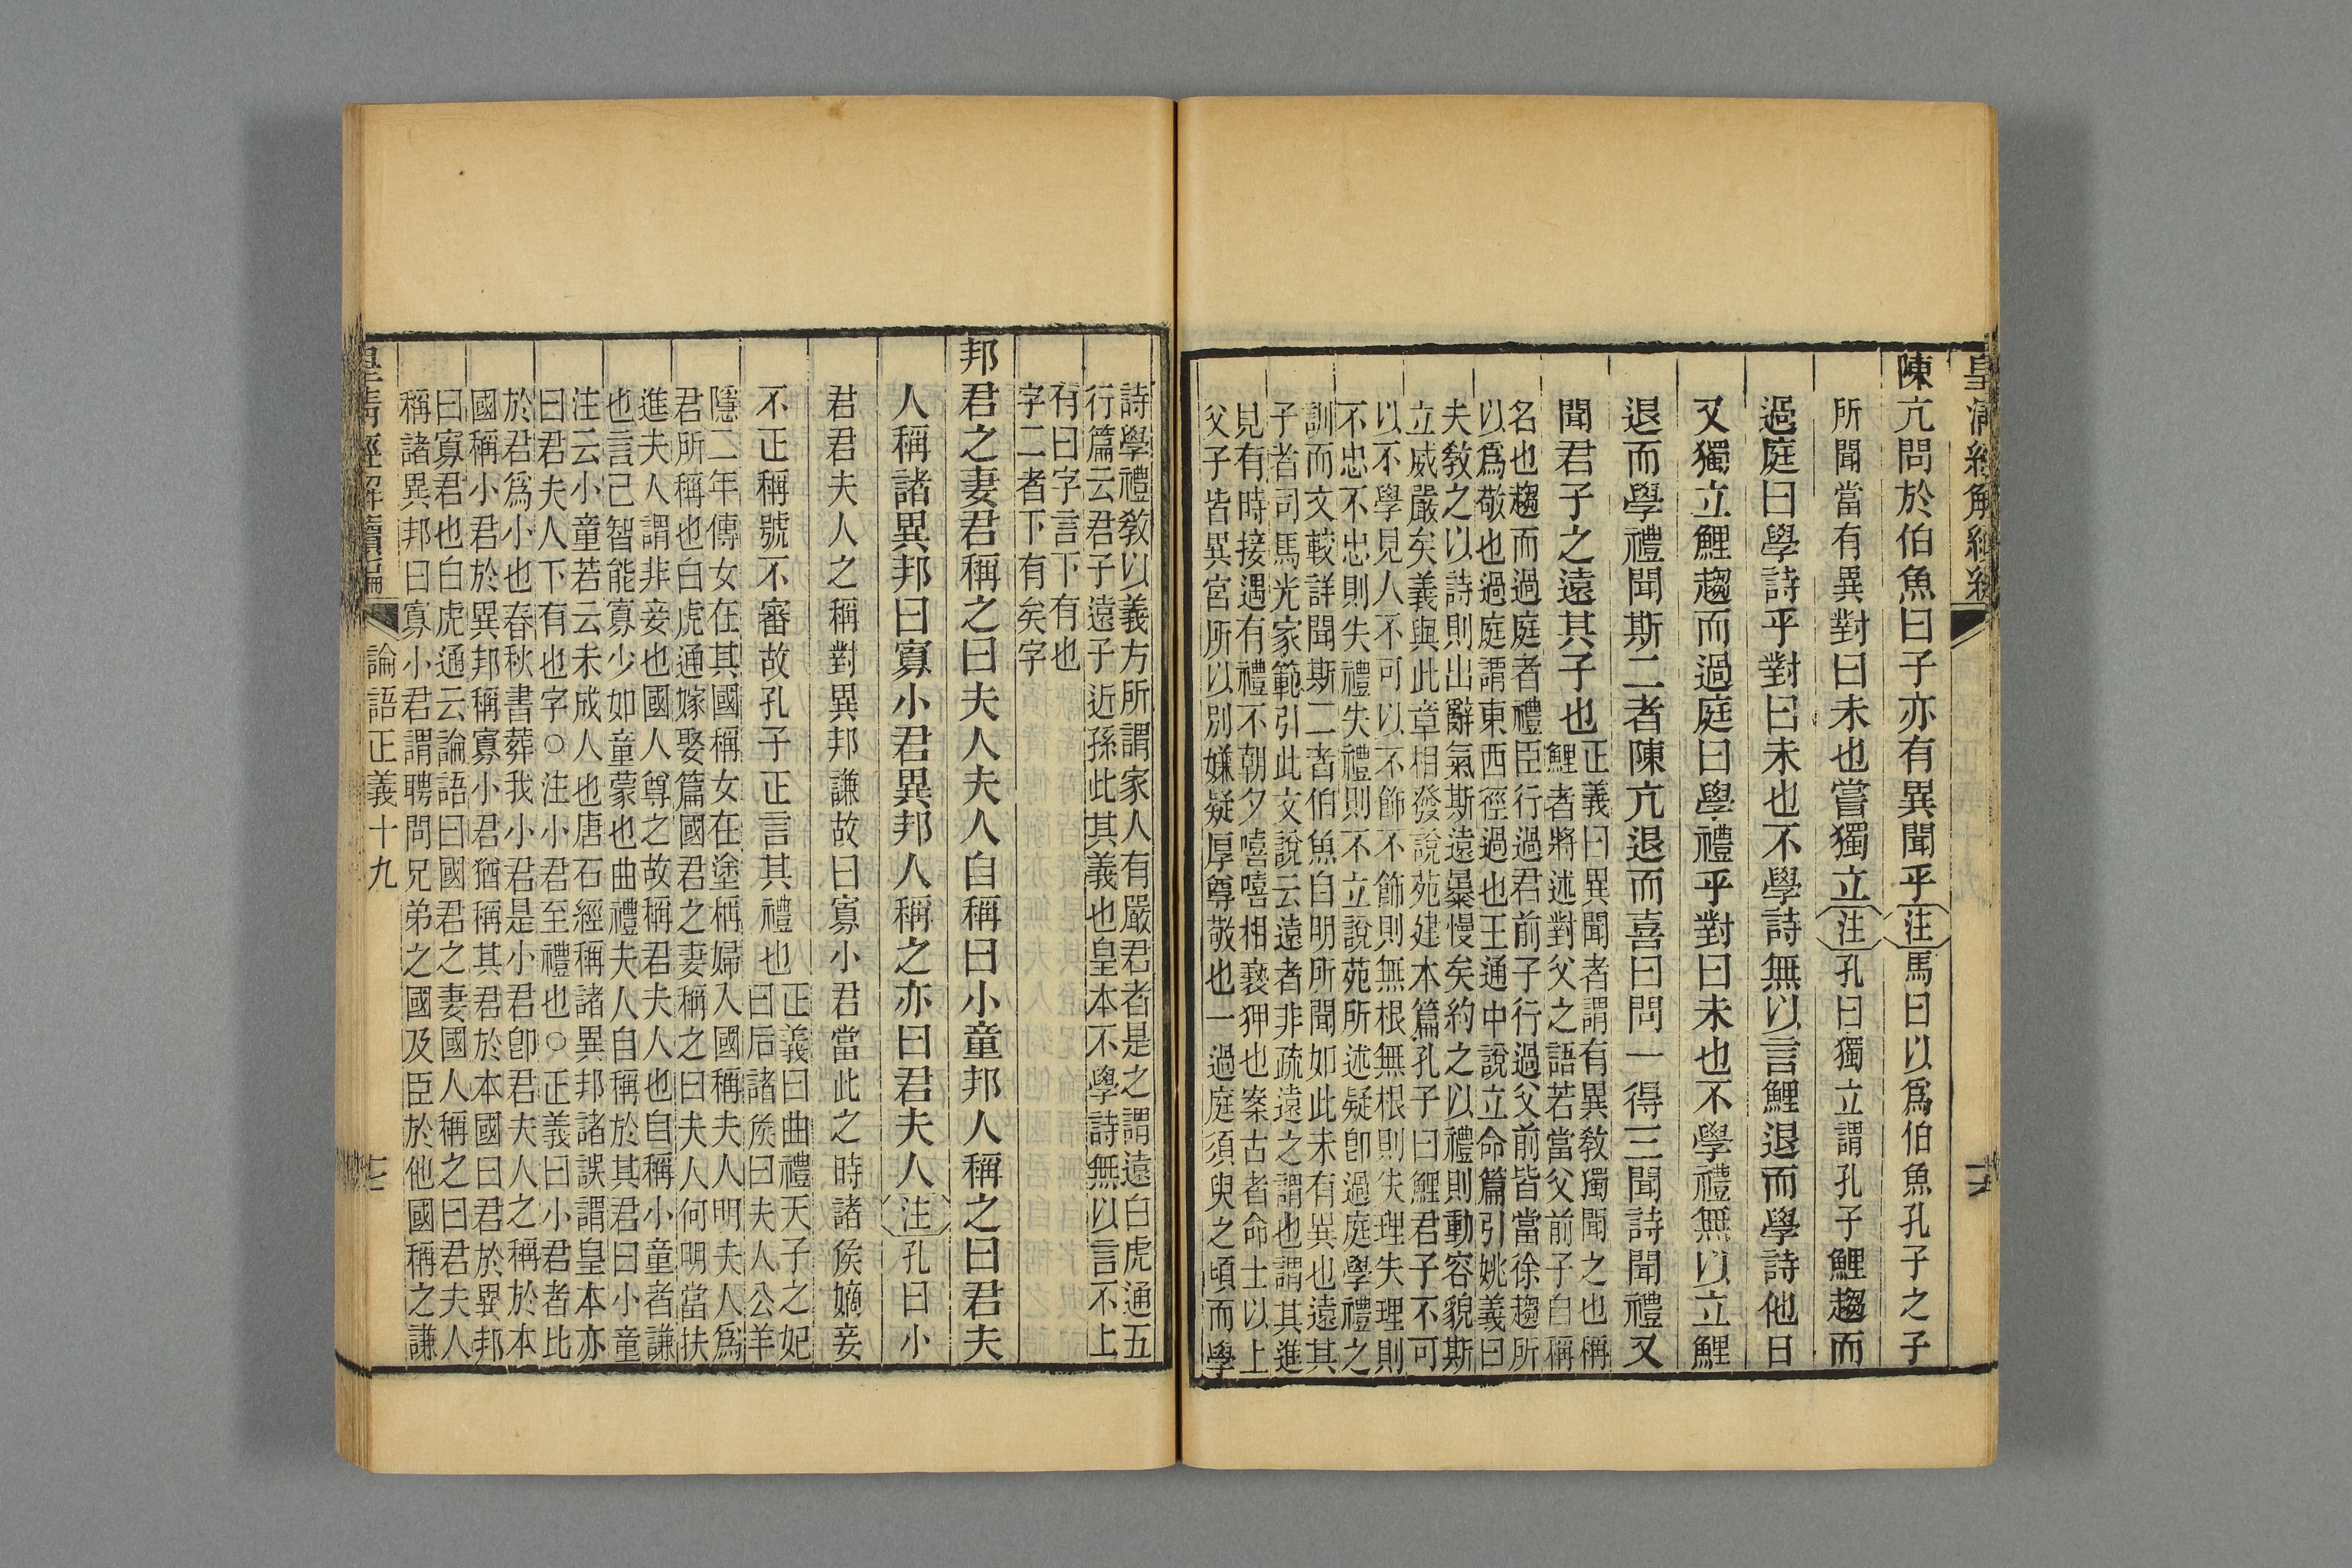 皇清經解續編
陳亢問於伯魚曰子亦有異聞乎注馬曰以爲伯魚孔子之子
所聞當有異對曰未也嘗獨立注孔曰獨立謂孔子鯉趨而
過庭曰學詩乎對曰未也不學詩無以言鯉退而學詩他日
又獨立鯉趨而過庭曰學禮乎對曰未也不學禮無以立鯉
退而學禮聞斯二者陳亢退而喜曰問一得三聞詩聞禮又
聞君子之遠其子也
正義曰異聞者謂有異敎獨聞之也稱
鯉者將述對父之語若當父前子自稱
名也趨而過庭者禮臣行過君前子行過父前皆當徐趨所
以爲敬也過庭謂東西徑過也王通中說立命篇引姚義曰
夫敎之以詩則出辭氣斯遠暴慢矣約之以禮則動容貌斯
立威嚴矣義與此章相發說苑建本篇孔子曰鯉君子不可
以不學見人不可以不飾不飾則無根無根則失理失理則
不忠不忠則失禮失禮則不立說苑所述疑卽過庭學禮之
訓而文較詳聞斯二者伯魚自明所聞如此未有異也遠其
子者司馬光家範引此文說云遠者非疏遠之謂也謂其進
見有時接遇有禮不朝夕嘻嘻相褻狎也案古者命士以上
父子皆異宮所以別嫌疑厚尊敬也一過庭須臾之頃而學
詩學禮敎以義方所謂家人有嚴君者是之謂遠白虎通五
行篇云君子遠子近孫此其義也皇本不學詩無以言不上
有曰字言下有也
字二者下有矣字
邦君之妻君稱之曰夫人夫人自稱曰小童邦人稱之曰君夫
人稱諸異邦曰寡小君異邦人稱之亦曰君夫人注孔曰小
君君夫人之稱對異邦謙故曰寡小君當此之時諸矦嫡妾
不正稱號不審故孔子正言其禮也
正義曰曲禮天子之妃
曰后諸矦曰夫人公羊
隱二年傳女在其國稱女在塗稱婦入國稱夫人明夫人爲
君所稱也白虎通嫁娶篇國君之妻稱之曰夫人何明當扶
進夫人謂非妾也國人尊之故稱君夫人也自稱小童者謙
也言己智能寡少如童蒙也曲禮夫人自稱於其君曰小童
注云小童若云未成人也唐石經稱諸異邦諸誤謂皇本亦
曰君夫人下有也字○注小君至禮也○正義曰小君者比
於君爲小也春秋書葬我小君是小君卽君夫人之稱於本
國稱小君於異邦稱寡小君猶稱其君於本國曰君於異邦
曰寡君也白虎通云論語曰國君之妻國人稱之曰君夫人
稱諸異邦曰寡小君謂聘問兄弟之國及臣於他國稱之謙
皇清經解續編 論語正義十九